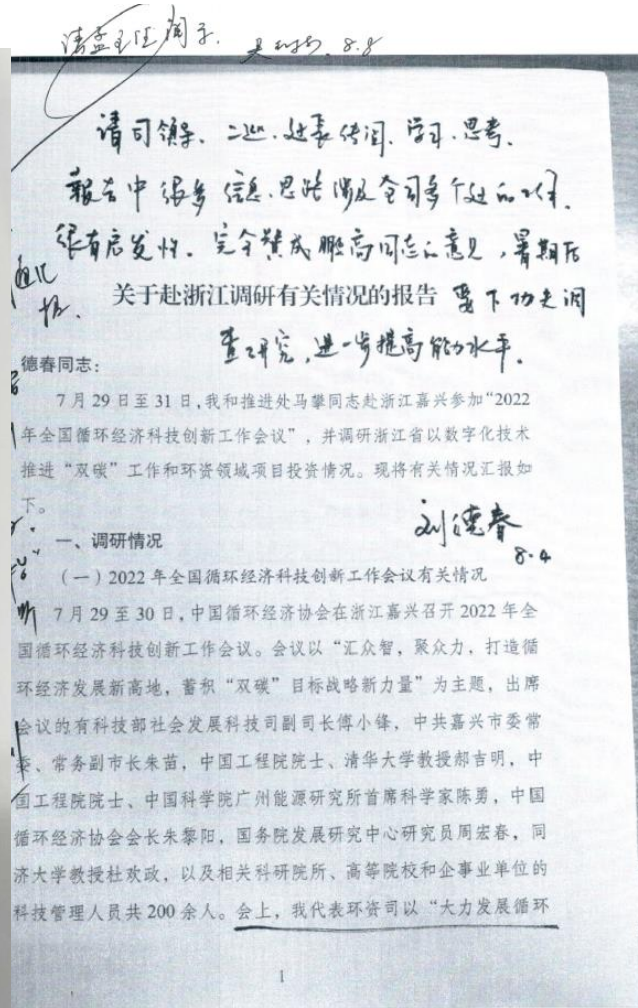 请孟主任阅示. 8.8
请司领导、二巡、处长传阅、学习、思考.
报告中很多信息、思路涉及全司多个处的工作.
很有启发性. 完全赞成鹏高同志的意见, 暑期后
关于赴浙江调研有关情况的报告 要下功夫调
查研究, 进一步提高能力水平.
德春同志：
7月29日至31日，我和推进处马攀同志赴浙江嘉兴参加“2022
年全国循环经济科技创新工作会议”，并调研浙江省以数字化技术
推进“双碳”工作和环资领域项目投资情况。现将有关情况汇报如
下。
刘德春
8.4
一、调研情况
（一）2022年全国循环经济科技创新工作会议有关情况
7月29至30日，中国循环经济协会在浙江嘉兴召开2022年全
国循环经济科技创新工作会议。会议以“汇众智，聚众力，打造循
环经济发展新高地，蓄积“双碳”目标战略新力量”为主题，出席
会议的有科技部社会发展科技司副司长傅小锋，中共嘉兴市委常
委、常务副市长朱苗，中国工程院院士、清华大学教授郝吉明，中
国工程院院士、中国科学院广州能源研究所首席科学家陈勇，中国
循环经济协会会长朱黎阳，国务院发展研究中心研究员周宏春，同
济大学教授杜欢政，以及相关科研院所、高等院校和企事业单位的
科技管理人员共200余人。会上，我代表环资司以“大力发展循环
1